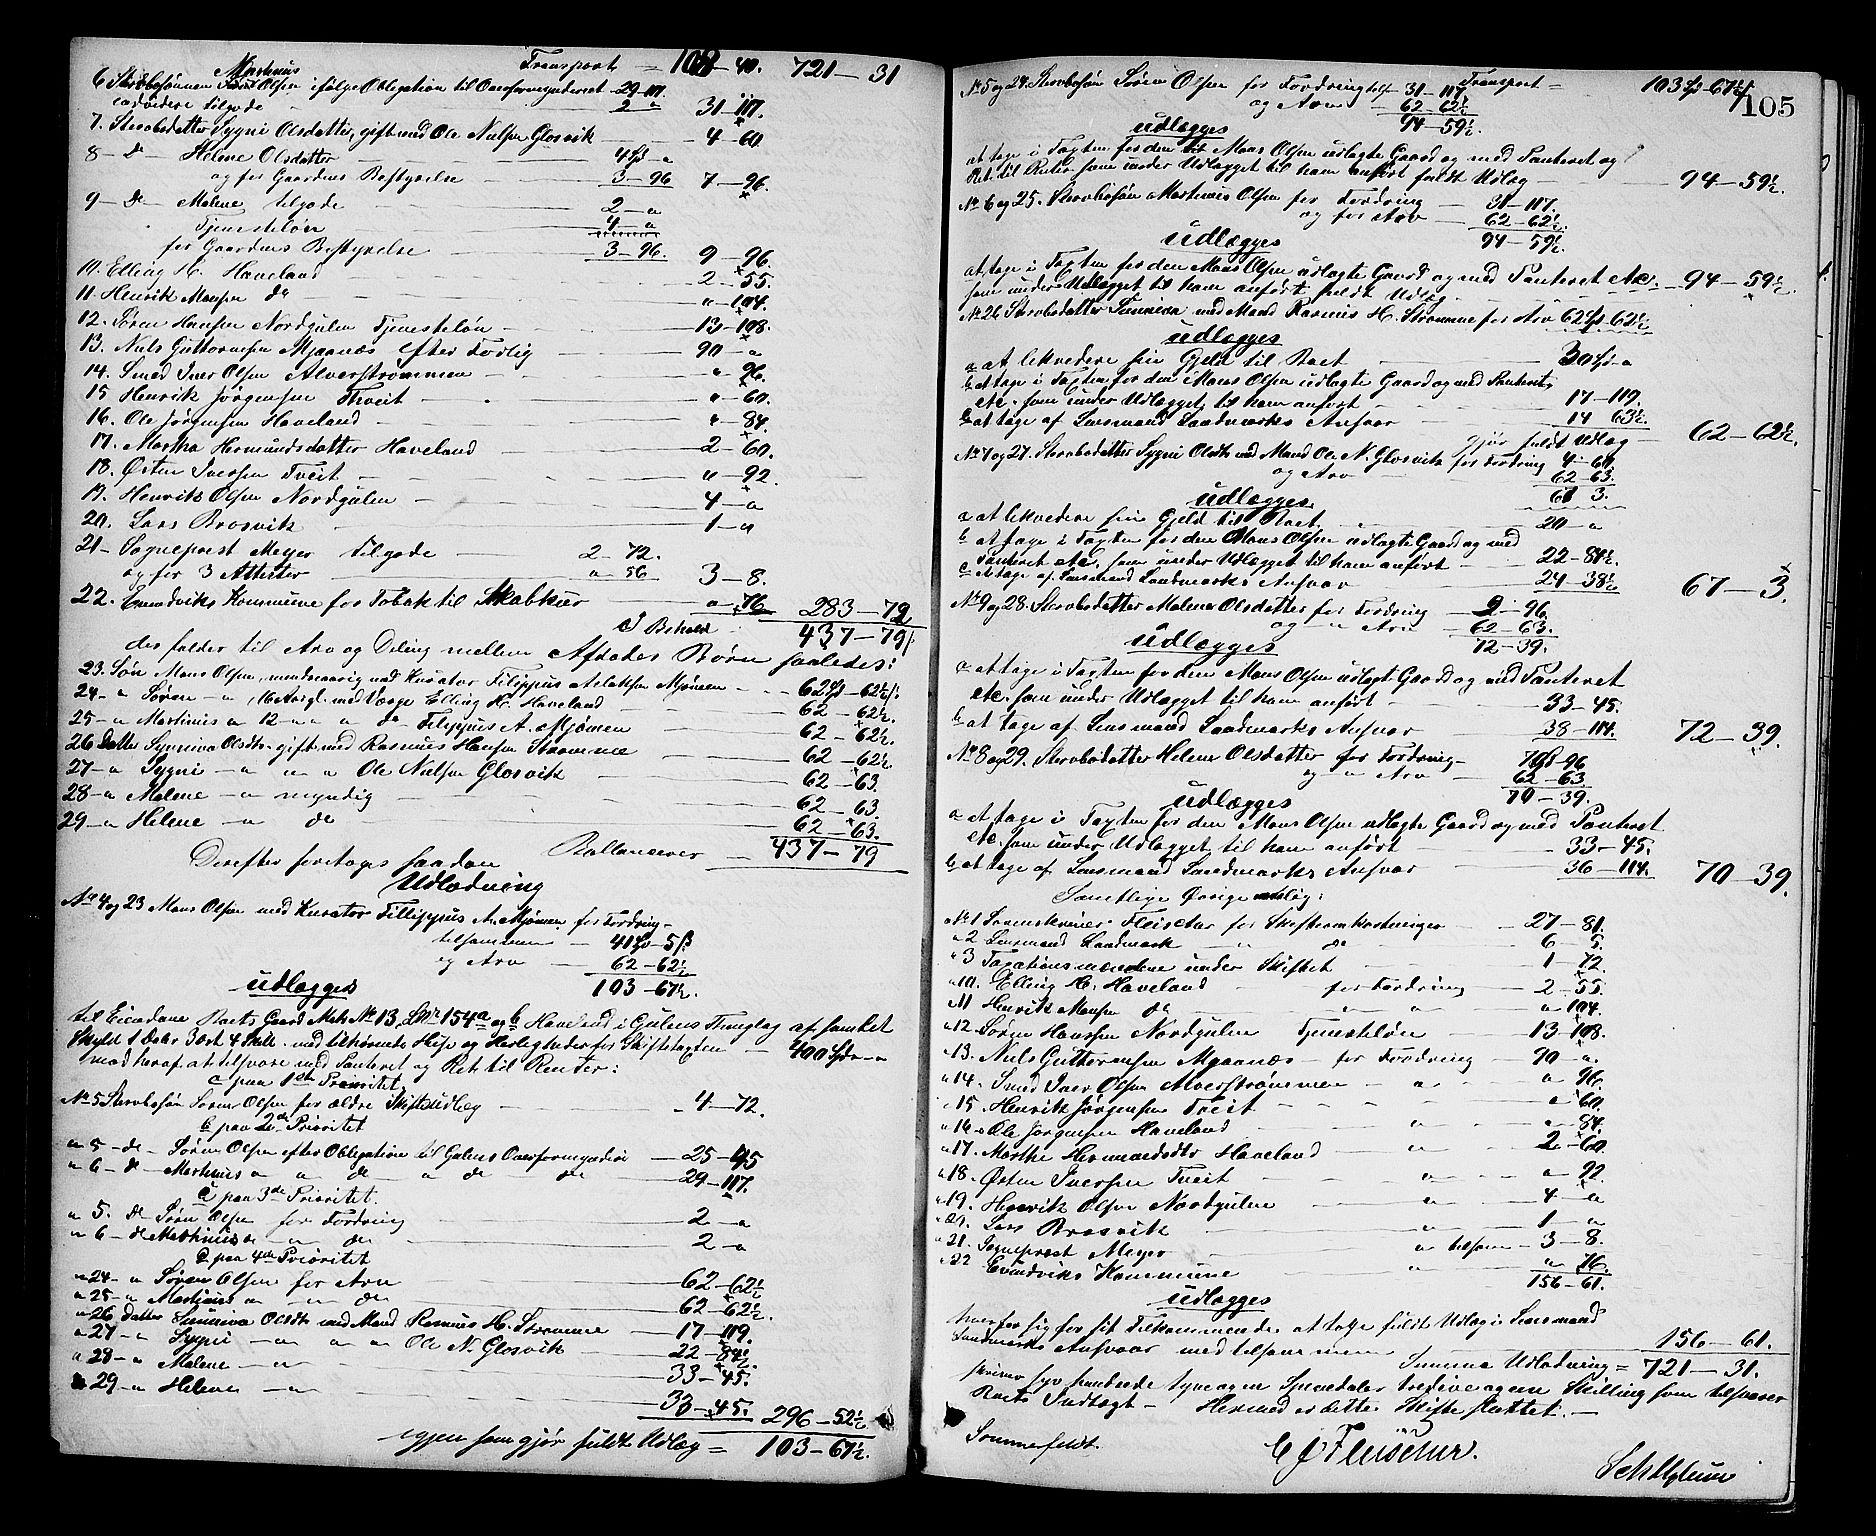 Transport = 108-40. 721-31
6 Stervbosønnen Martinus Olsen ifølge Obligation til Overformynderiet 29-117.
endvidere tilgode 2 " 31-117.
7. Stervbsdatter Sygni Olsdatter, gift med Ole Nielsen Glosvik 4-60
8- do- Helene Olsdatter 4 Sp "
og for Gaardens Bestyrelse 3-96 7-96.
9- do- Malene tilgode 2-"
Tjenesteløn 4-"
for Gaardens Bestyrelse 3-96. 9-96.
10. Elling H. Haveland 2-55.
11. Henrik Monsen do "-104.
12. Søren Hansen Nordgulen Tjenesteløn 13-108.
13. Niels Guttormsen Mjaanæs efter Forlig 90-"
14. Smed Iver Olsen Alverstrømmen "-96.
15 Henrik Jørgensen Tveit "-60.
16. Ole Jørgensen Haveland "-84.
17. Martha Hermundsdatter Haveland 2-60.
18. Østen Iversen Tveit "-92.
19. Henrik Olsen Nordgulen 4-"
20. Lars Brosvik 1-"
21- Sogneprest Meyer tilgode 2-72.
og for 3 Attester "-56 3-8.
22. Evindviks Kommune for Tobak til Skabkur "-76 283-72
I Behold 437-79
der falder til Arv og Deling mellem Afdødes Børn saaledes:
23. Søn Mons Olsen, mindreaarig med Kurator Filippus Aslaksen Mjømen 62 Sp-62½
24- " Søren - " 16 Aar gl. med Værge Elling H. Haveland 62-62½.
25- " Martinus " 12 - " " " do Filippus A. Mjømen 62-62½.
26 Datter Synniva Olsdtr. gift med Rasmus Hansen Strømme 62-62½
27- " Sygni - " " " Ole Nielsen Glosvik 62-63.
28- " Malene - " myndig 62-63.
29- " Helene - " do 62-63.
Ballancerer 437-79
Derefter foretages saadan
Udlodning
No 4 og 23 Mons Olsen med Kurator Fillippus A. Mjømen for Fordring
tilsammen 41 Sp-5 ß
og Arv 62-62½
103-67½.
udlægges
til Eiendom Boets Gaard Mat No 13, Lno 154a og b Haveland i Gulens Thinglag af samlet
Skyld 1 Daler 3 Ort 4 Skill. med tilhørende Huse og Herligheder for Skiftetaxten 400 Spd-"
mod heraf at tilsvare med Panteret og Ret til Renter:
a paa 1ste Prioritet
No 5 Stervbosøn Søren Olsen for ældre Skifteudlæg "4-72.
b paa 2den Prioritet
" 5 - do - Søren Olsen efter Obligation til Gulens Overformynderi 25-45
" 6 - do - Martinus " " do " do do 29-117.
c paa 3de Prioritet
" 5. do Søren Olsen for Fordring 2-"
" 6 - do Martinus do " do 2-"
d paa 4de Prioritet
" 24 - " Søren Olsen for Arv 62-62½
" 25 - " Martinus " " do 62-62½.
" 26 Datter Sunniva Olsdtr med Mand Rasmus H. Strømme 17-119.
" 27 - " Sygni - " " " Ole N. Glosvik 22-84½
" 28 - " Malene - " 33-45.
" 29 - " Helene - " 33-45. 296-52½
igjen som gjør fuldt Udlæg = 103-67½.
105
Transport = 103 Sp-67½
No 5 og 24. Stervbosøn Søren Olsen for Fordring tils. 31-117
og Arv 62-62½
94-59½.
udlægges
at tage i Taxten for den til Mons Olsen udlagte Gaard og med Panteret og
Ret til Renter, som under Udlægget til ham anført fuldt Udlæg 94-59½.
No 6 og 25. Stervbosøn Martinus Olsen for Fordring 31-117.
og for Arv 62-62½.
94-59½.
udlægges
at tage i Taxten for den Mons Olsen udlagte Gaard og med Panteret etc.
som under Udlægget til ham anført fuldt Udlæg 94-59½.
No 26 Stervbsdatter Sunniva med Mand Rasmus H. Strømme for Arv 62 Sp 62½
udlægges
a at likvidere sin Gjeld til Boet 30 Sp-"
b at tage i Taxten for den Mons Olsen udlagte Gaard og med Panteret
etc. som under Udlægget til ham anført 17-119.
c at tage af Lensmand Landmarks Ansvar 14 63½.
gjør fuldt Udlæg 62-62½.
No 7 og 27. Stervbsdatter Sygni Olsdtr med Mand Ole N. Glosvik for Fordring 4-60
og Arv 62-63.
67 3.
udlægges.
a at likvidere sin Gjeld til Boet 20-"
b at tage i Taxten for den Mons Olsen udlagte Gaard og med
Panteret etc. som under Udlægget til ham anført 22-84½
c at tage af Lensmand Landmarks Ansvar 24-38½ 67-3.
No 9 og 28. Stervbsdatter Malene Olsdatter for Fordring 9-96.
og " Arv 62-63.
72-39.
udlægges
a at tage i Taxten for den Mons Olsen udlagte Gaard og med Panteret
etc. som under Udlægget til ham anført 33-45.
b at tage af Lensmand Landmarks Ansvar 38-114. 72-39.
No 8 og 29. Stervbsdatter Helene Olsdatter for Fordring 7 Sp-96
og " Arv 62-63
70-39.
udlægges
a at tage i Taxten for den Mons Olsen udlagte Gaard og med Panteret
etc. som under Udlægget til ham anført 33-45.
b at tage af Lensmand Landmarks Ansvar 36-114. 70-39.
Samtlige Øvrige nemlig:
No 1 Sorenskriver Fleischer for Skifteomkostninger 27-81.
" 2 Lensmand Landmark " do 6-5.
" 3 Taxationsmændene under Skiftet 1-72.
" 10. Elling H. Haveland for Fordring 2-55.
" 11 Henrik Monsen do " "-104.
" 12 Søren Hansen Nordgulen Tjenesteløn 13-108.
" 13. Niels Guttormsen Mjaanæs for Fordring 90-".
" 14. Smed Iver Olsen Alverstrømmen " "-96.
" 15. Henrik Jørgensen Tveit " "-60.
" 16. Ole Jørgensen Haveland " "-84.
" 17. Marthe Hermundsdtr Haveland " 2-60
" 18. Østen Iversen Tveit " "-92.
" 19. Henrik Olsen Nordgulen " 4-"
" 20. Lars Brosvik " 1-"
" 21. Sogneprest Meyer " tilsam 3-8.
" 22 Evindviks Kommune " "-76.
156-61.
udlægges
hver for sig for sit Tilkommende at tage fuldt Udlæg i Lensmand
Landmarks Ansvar med tilsammen 156-61.
Summa Udlodning = 721-31.
skriver syv hundrede tyve og en Speciedaler tredive og en Skilling som tilsvarer
Boets Indtægt - Hermed er dette Skifte sluttet. -
Sommerfeldt. C J Fleischer.